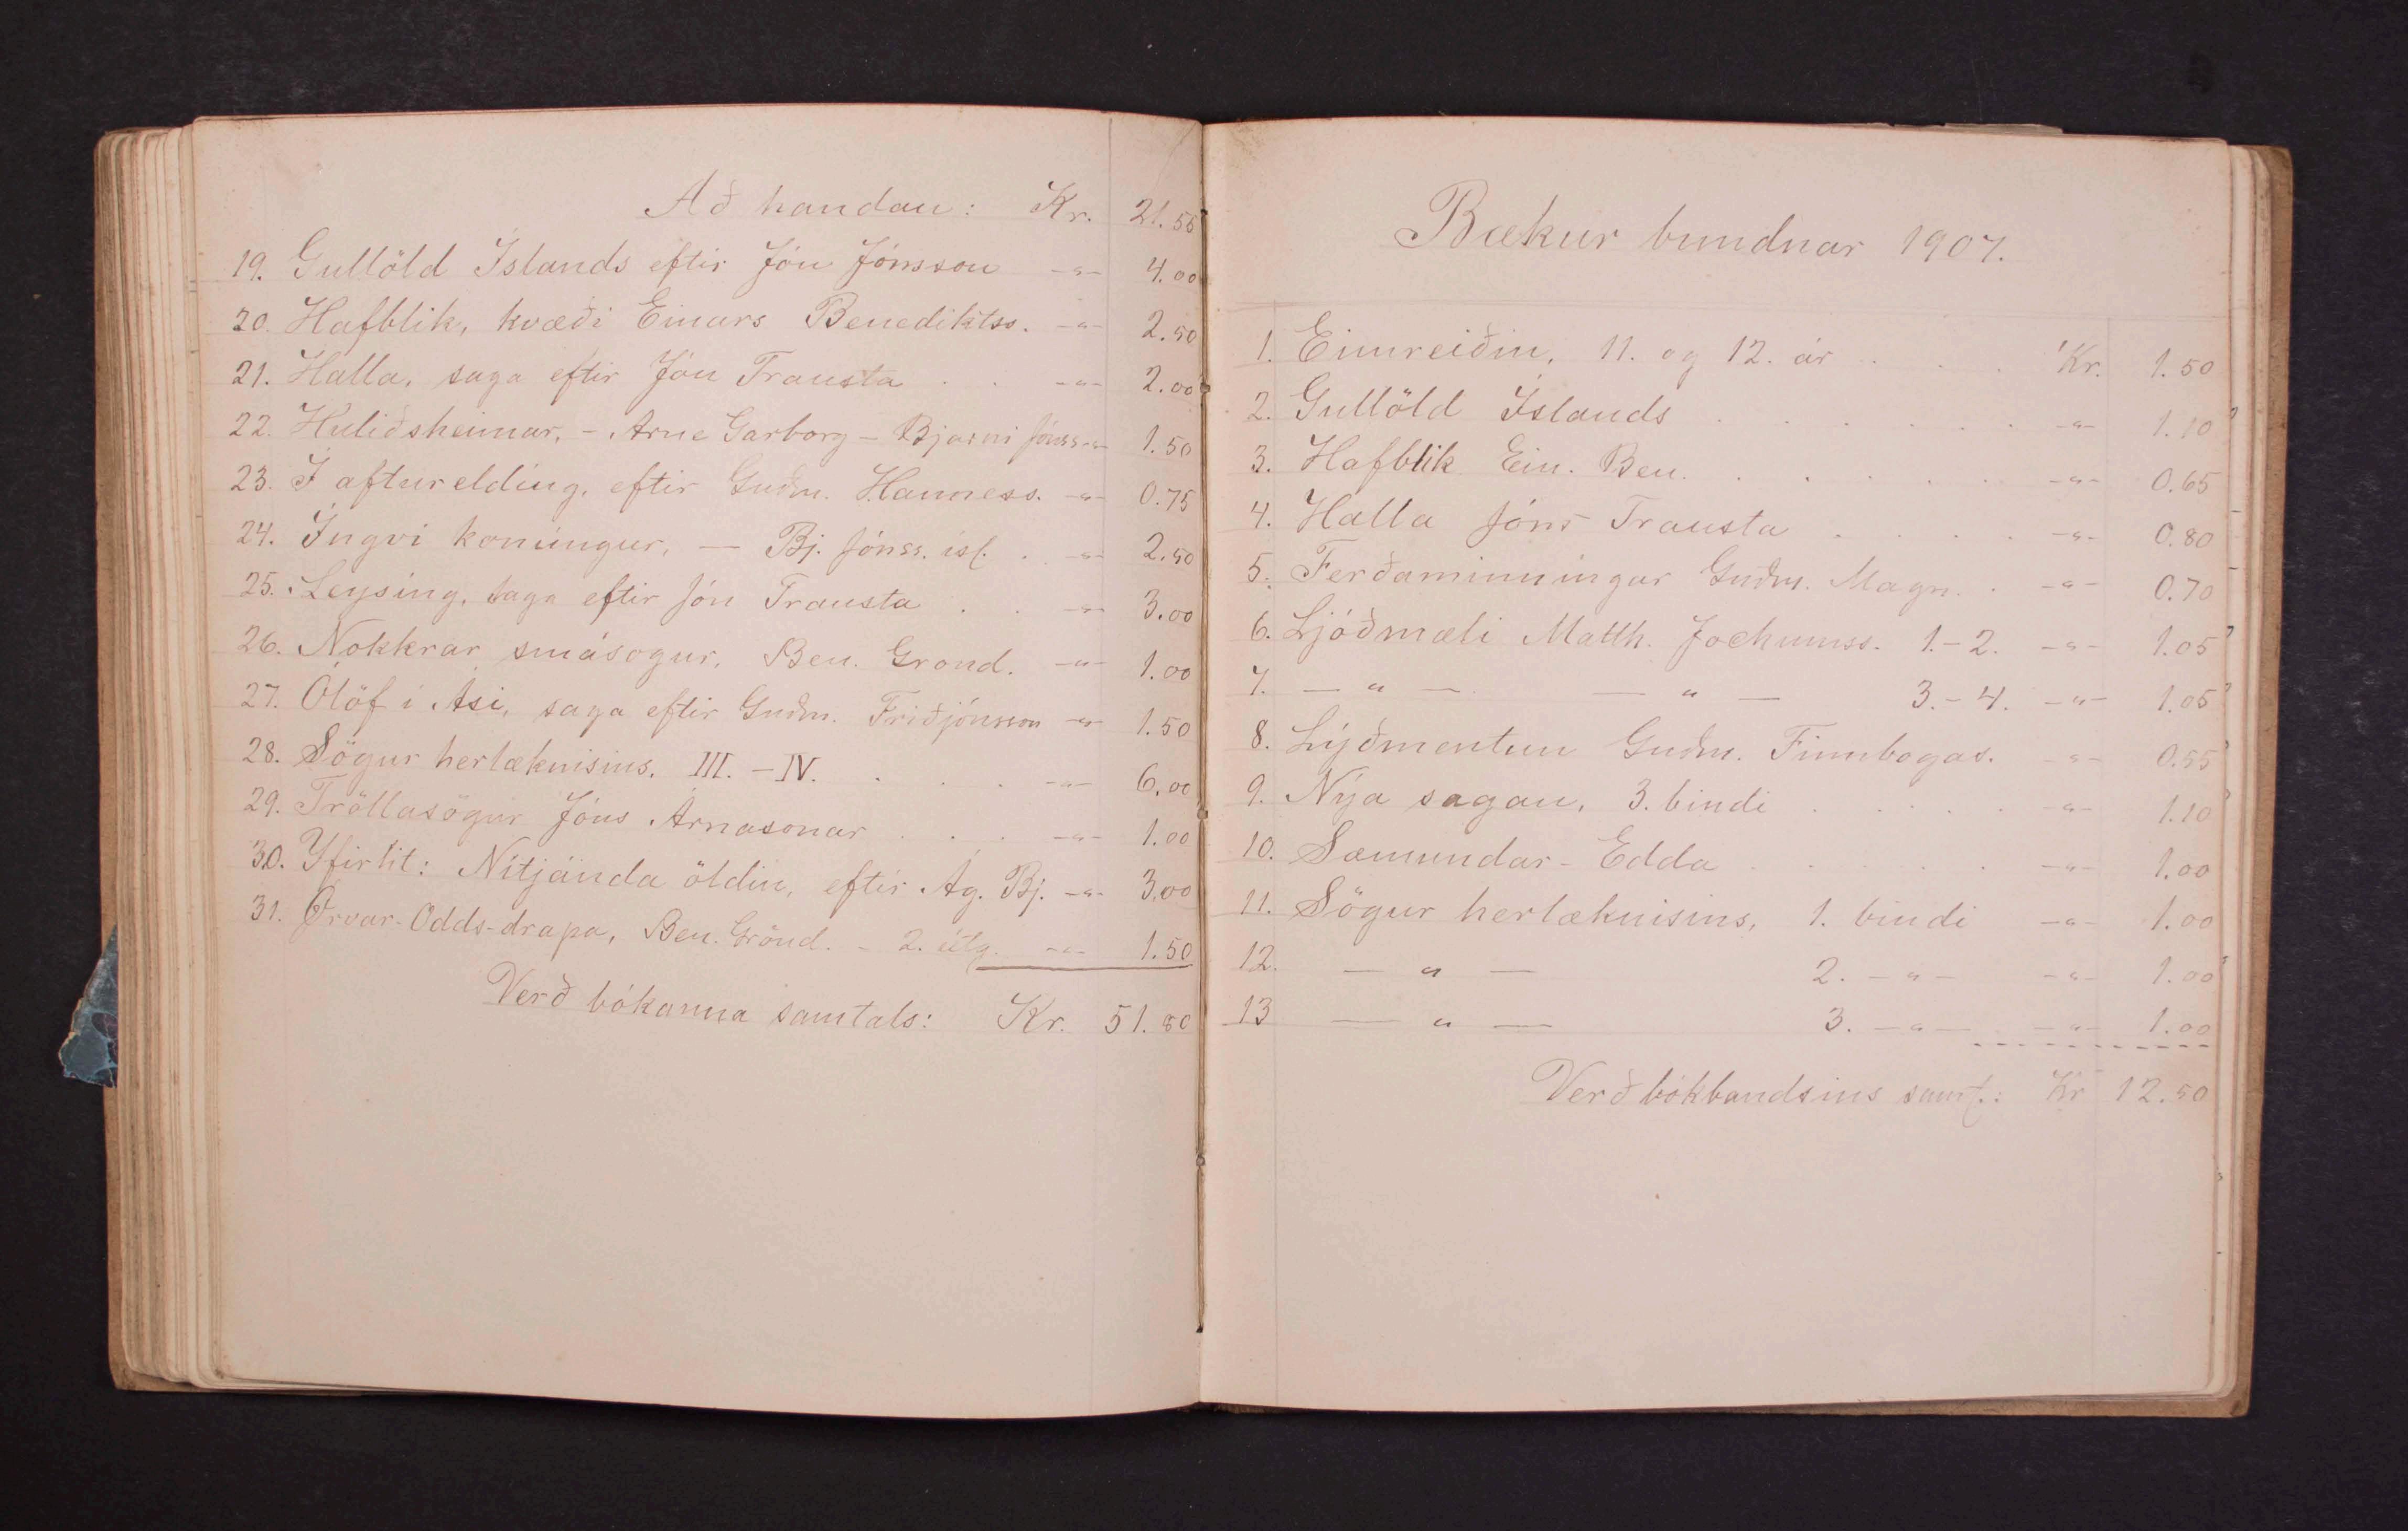 Að handan: Kr. 21.55
19. Gullöld Íslands eftir Jón Jónsson -„- 4.00
20. Hafblik, kvæði Einars Benediktss. -„- 2.50
21. Halla, saga eftir Jón Trausta . . -„- 2.00
22. Huliðsheimar, - Arne Garborg - Bjarni Jónss -„- 1.50
23. Í afturelding, eftir Guðm. Hanness. -„- 0.75
24. Íngvi konúngur, — Bj. Jónss. ísl. . -„- 2.50
25. Leysing, saga eftir Jón Trausta . . -„- 3.00
26. Nokkrar smásogur, Ben. Grond. -„- 1.00
27. Ólöf í Ási, saga eftir Guðm. Friðjónsson -„- 1.50
28. Sögur herlæknisins. III. - IV. . . . -„- 6.00
29. Tröllasögur Jóns Árnasonar . . . -„- 1.00
30. Yfirlit: Nítjánda öldin, eftir Ág. Bj. -„- 3.00
31. Örvar-Odds-drapa, Ben. Grönd. - 2. útg. -„- 1.50
Verð bókanna samtals: Kr. 51.80
Bækur bundnar 1907.
1. Eimreiðin, 11. og 12. ár . . . Kr. 1.50
2. Gullöld Íslands . . . . . . -„- 1.10
3. Hafblik Ein. Ben. . . . . . . -„- 0.65
4. Halla Jóns Trausta . . . . -„- 0.80
5. Ferðaminningar Guðm. Magn. . -„- 0.70
6. Ljóðmæli Matth. Jochumss. 1.-2. -„- 1.05
7. — „ — — „ — 3.-4. -„- 1.05
8. Lýðmentun Guðm. Finnbogas. -„- 0.55
9. Nýja sagan, 3. bindi . . . . . -„- 1.10
10. Sæmundar-Edda . . . . . -„- 1.00
11. Sögur herlæknisins, 1. bindi -„- 1.00
12. — „ — 2. -„- -„- 1.00
13 — „ — 3. -„- -„- 1.00
Verð bókbandsins samt.: Kr 12.50